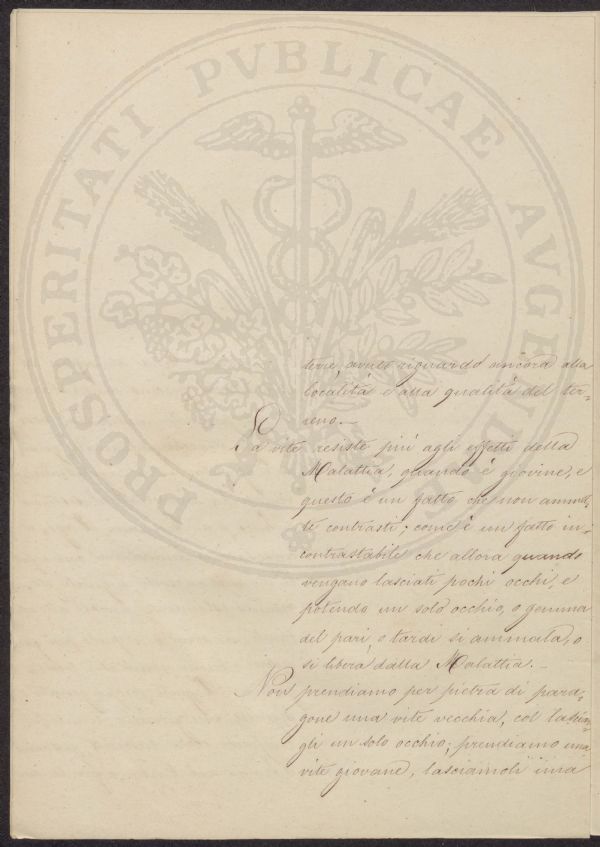 PROSPERITATI PVBLICAE AVGENDAE
terre, avuto riguardo ancora alla
località e alla qualità del ter=
reno.—
La vite resiste più agli effetti della
Malattia, quando è giovine, e
questo è un fatto che non ammet=
te contrasti; come è un fatto in=
contrastabile che allora quando
vengano lasciati pochi occhi, e
potendo un solo occhio, o gemma
del pari, o tardi si ammala, o
si libera dalla Malattia.—
Non prendiamo per pietra di para=
gone una vite vecchia, col lascian=
gli un solo occhio; prendiamo una
vite giovane, lasciamoli una